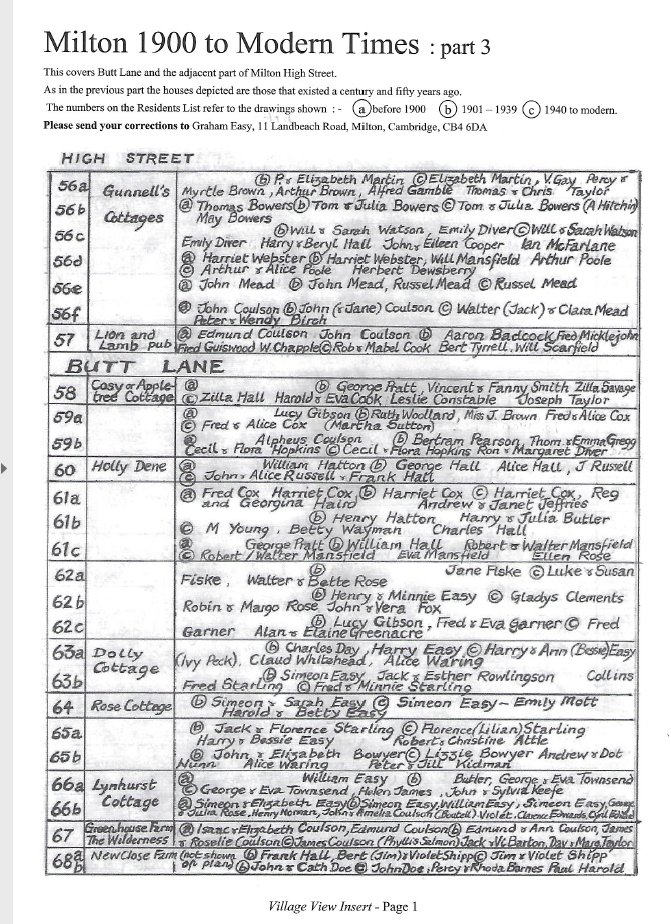 Milton 1900 to Modern Times : part 3
This covers Butt Lane and the adjacent part of Milton High Street.
As in the previous part the houses depicted are those that existed a century and fifty years ago.
The numbers on the Residents List refer to the drawings shown :- (a) before 1900 (b) 1901 – 1939 (c) 1940 to modern.
Please send your corrections to Graham Easy, 11 Landbeach Road, Milton, Cambridge, CB4 6DA
HIGH STREET
56a Gunnell's Cottages (b) P. & Elizabeth Martin (c) Elizabeth Martin, V. Gay Percy &
Myrtle Brown, Arthur Brown, Alfred Gamble Thomas & Chris Taylor
56b (a) Thomas Bowers (b) Tom & Julia Bowers (c) Tom & Julia Bowers (A Hitchin)
May Bowers
56c (b) Will & Sarah Watson, Emily Diver (c) Will & Sarah Watson
Emily Diver Harry & Beryl Hall John & Eileen Cooper Ian McFarlane
56d (a) Harriet Webster (b) Harriet Webster, Will Mansfield Arthur Poole
(c) Arthur & Alice Poole Herbert Dewsberry
56e (a) John Mead (b) John Mead, Russel Mead (c) Russel Mead
56f (a) John Coulson (b) John (& Jane) Coulson (c) Walter (Jack) & Clara Mead
Peter & Wendy Birch
57 Lion and Lamb pub (a) Edmund Coulson John Coulson (b) Aaron Badcock, Fred Micklejohn
Fred Guiswood W. Chapple (c) Rob & Mabel Cook Bert Tyrrell, Will Scarfield
BUTT LANE
58 Cosy or Apple-tree Cottage (a) (b) George Pratt, Vincent & Fanny Smith Zilla Savage
(c) Zilla Hall Harold & Eva Cook Leslie Constable Joseph Taylor
59a (a) Lucy Gibson (b) Ruth Woollard, Miss J. Brown Fred & Alice Cox
(c) Fred & Alice Cox (Martha Sutton)
59b (a) Alpheus Coulson (b) Bertram Pearson, Thom. & Emma Gregg
Cecil & Flora Hopkins (c) Cecil & Flora Hopkins Ron & Margaret Diver
60 Holly Dene (a) William Hatton (b) George Hall Alice Hall, J Russell
(c) John & Alice Russell & Frank Hall
61a (a) Fred Cox Harriet Cox, (b) Harriet Cox (c) Harriet Cox, Reg
and Georgina Haird Andrew & Janet Jeffries
61b (b) Henry Hatton Harry & Julia Butler
(c) M Young, Betty Wayman Charles Hall
61c (a) George Pratt (b) William Hall Robert & Walter Mansfield
(c) Robert/Walter Mansfield Eva Mansfield Ellen Rose
62a (b) Jane Fiske (c) Luke & Susan
Fiske, Walter & Bette Rose
62b (b) Henry & Minnie Easy (c) Gladys Clements
Robin & Margo Rose John & Vera Fox
62c (b) Lucy Gibson, Fred & Eva Garner (c) Fred
Garner Alan & Elaine Greenacre
63a Dolly Cottage (b) Charles Day, Harry Easy (c) Harry & Ann (Bessie) Easy
(Ivy Peck), Claud Whitehead, Alice Waring
63b (b) Simeon Easy, Jack & Esther Rowlingson Collins
Fred Starling (c) Fred & Minnie Starling
64 Rose Cottage (b) Simeon & Sarah Easy (c) Simeon Easy – Emily Mott
Harold & Betty Easy
65a (b) Jack & Florence Starling (c) Florence (Lilian) Starling
Harry & Bessie Easy Robert & Christine Attle
65b (b) John & Elizabeth Bowyer (c) Lizzie Bowyer Andrew & Dot
Nunn Alice Waring Peter & Jill Kidman
66a Lynhurst Cottage (a) William Easy (b) Butler, George & Eva Townsend
(c) George & Eva Townsend, Helen James, John & Sylvia Keefe
66b (a) Simeon & Elizabeth Easy (b) Simeon Easy, William Easy, Simeon Easy, George
& Julia Rose, Henry Norman, John & Amelia Coulson (Boutell) Violet, Clarence Edwards,
67 Greenhouse Farm The Wilderness (a) Isaac & Elizabeth Coulson, Edmund Coulson (b) Edmund & Ann Coulson, James
& Roselie Coulson (c) James Coulson (Phyllis Salmon) Jack & Vi. Barton, Dav & Marg. Taylor
68a New Close Farm (not shown on plan) (b) Frank Hall, Bert (Jim) & Violet Shipp (c) Jim & Violet Shipp
b (b) John & Cath Doe (c) John Doe, Percy & Rhoda Barnes Paul Harold
Village View Insert - Page 1